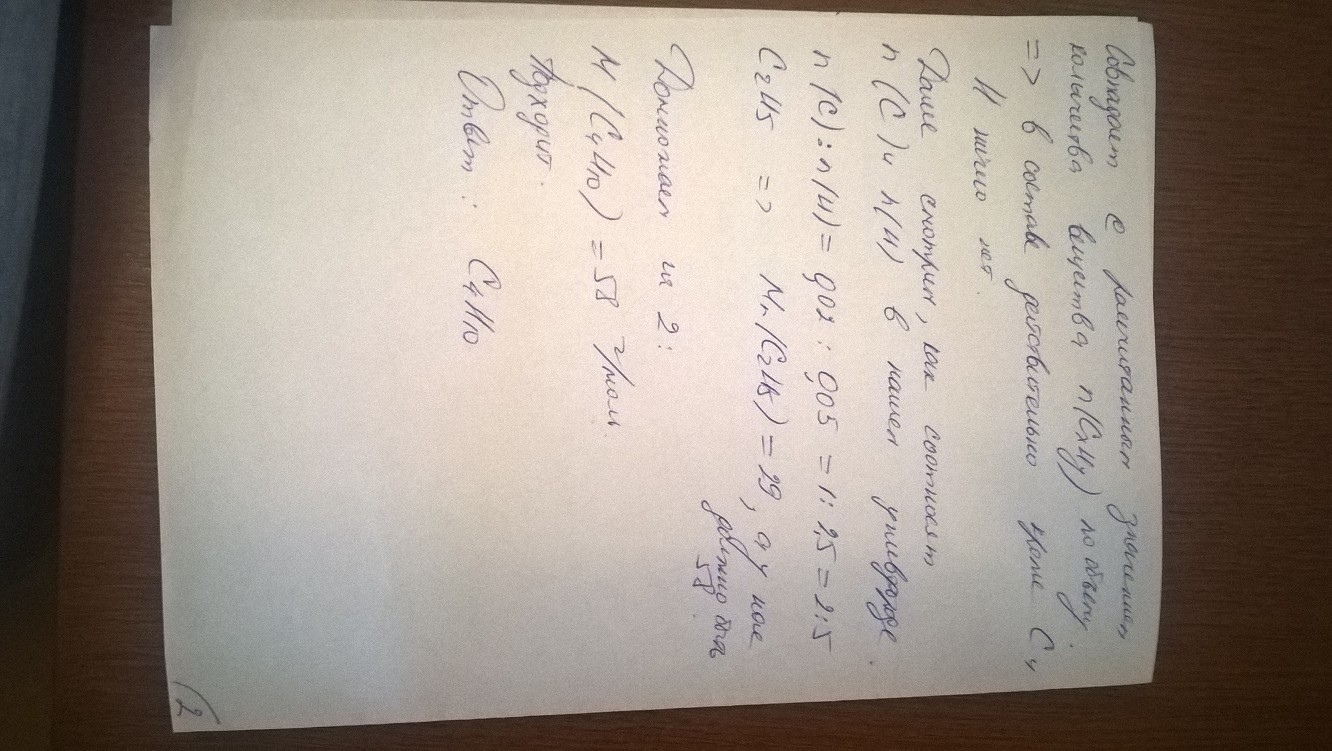 Совпадает с расчитанным значением
количества вещества n(CxHy) по объему.
=> в составе действительно кроме C и
H ничего нет.
Далее смотрим, как соотносят
n(C) и n(H) в нашем углеводороде.
n(C):n(H)= 0,02 : 0,05 = 1: 2,5 = 2:5
C2H5 => Mr(C2H5) = 29, а у нас
должно быть
58.
Домножаем на 2:
M(C4H10) = 58 г/моль.
Подходит.
Ответ: C4H10
(2